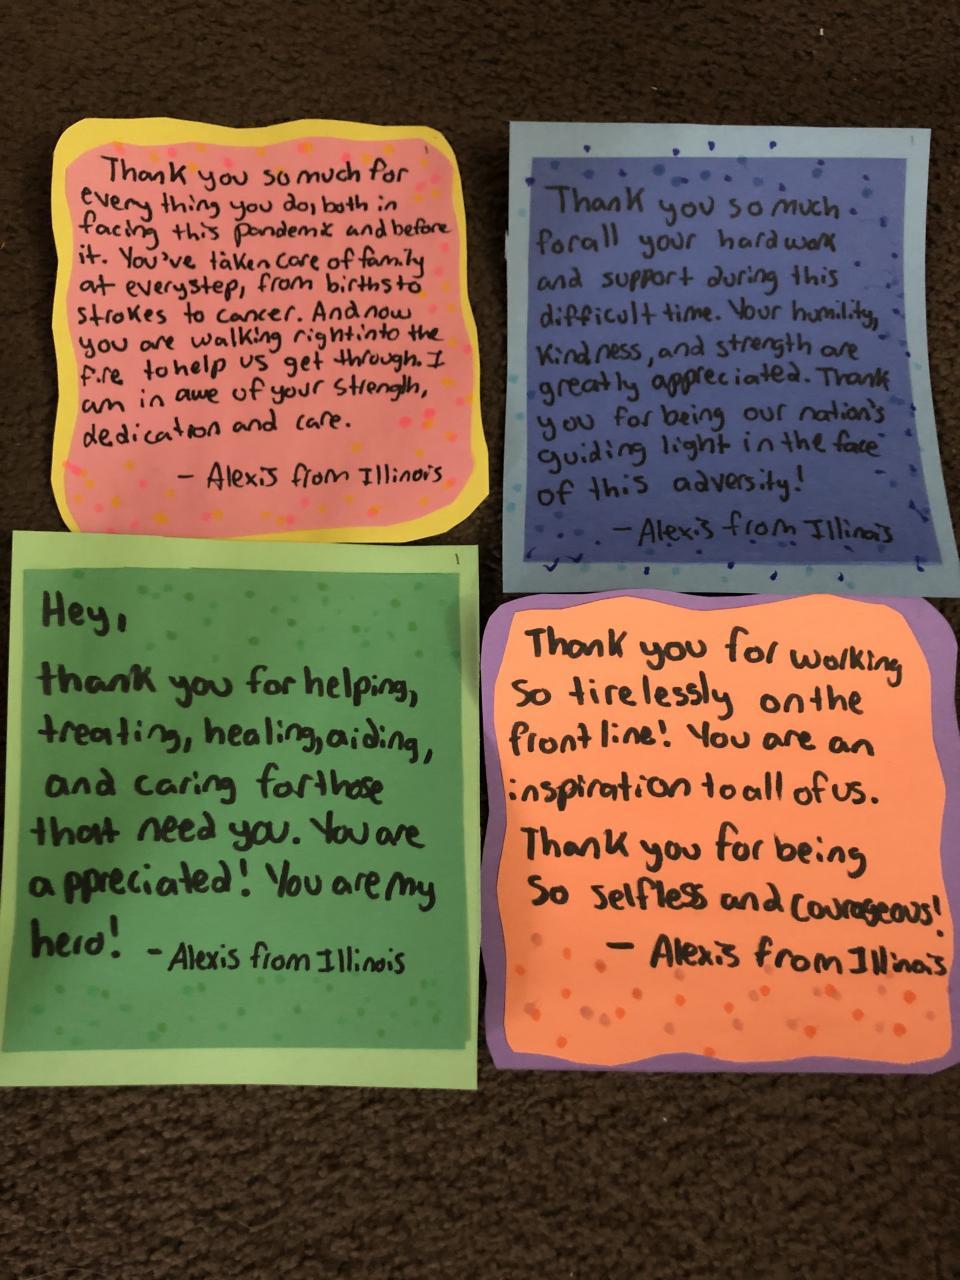 Thank you so much for
every thing you do, both in
facing this pandemic and before
it. You've taken care of family
at every step, from births to
strokes to cancer. And now
you are walking right into the
fire to help us get through. I
am in awe of your strength,
dedication and care.
- Alexis from Illinois
Thank you so much
for all your hard work
and support during this
difficult time. Your humility,
kindness, and strength are
greatly appreciated. Thank
you for being our nation's
guiding light in the face
of this adversity!
- Alexis from Illinois
Hey,
thank you for helping,
treating, healing, aiding,
and caring for those
that need you. You are
appreciated! You are my
hero! - Alexis from Illinois
Thank you for working
so tirelessly on the
front line! You are an
inspiration to all of us.
Thank you for being
so selfless and courageous!
- Alexis from Illinois